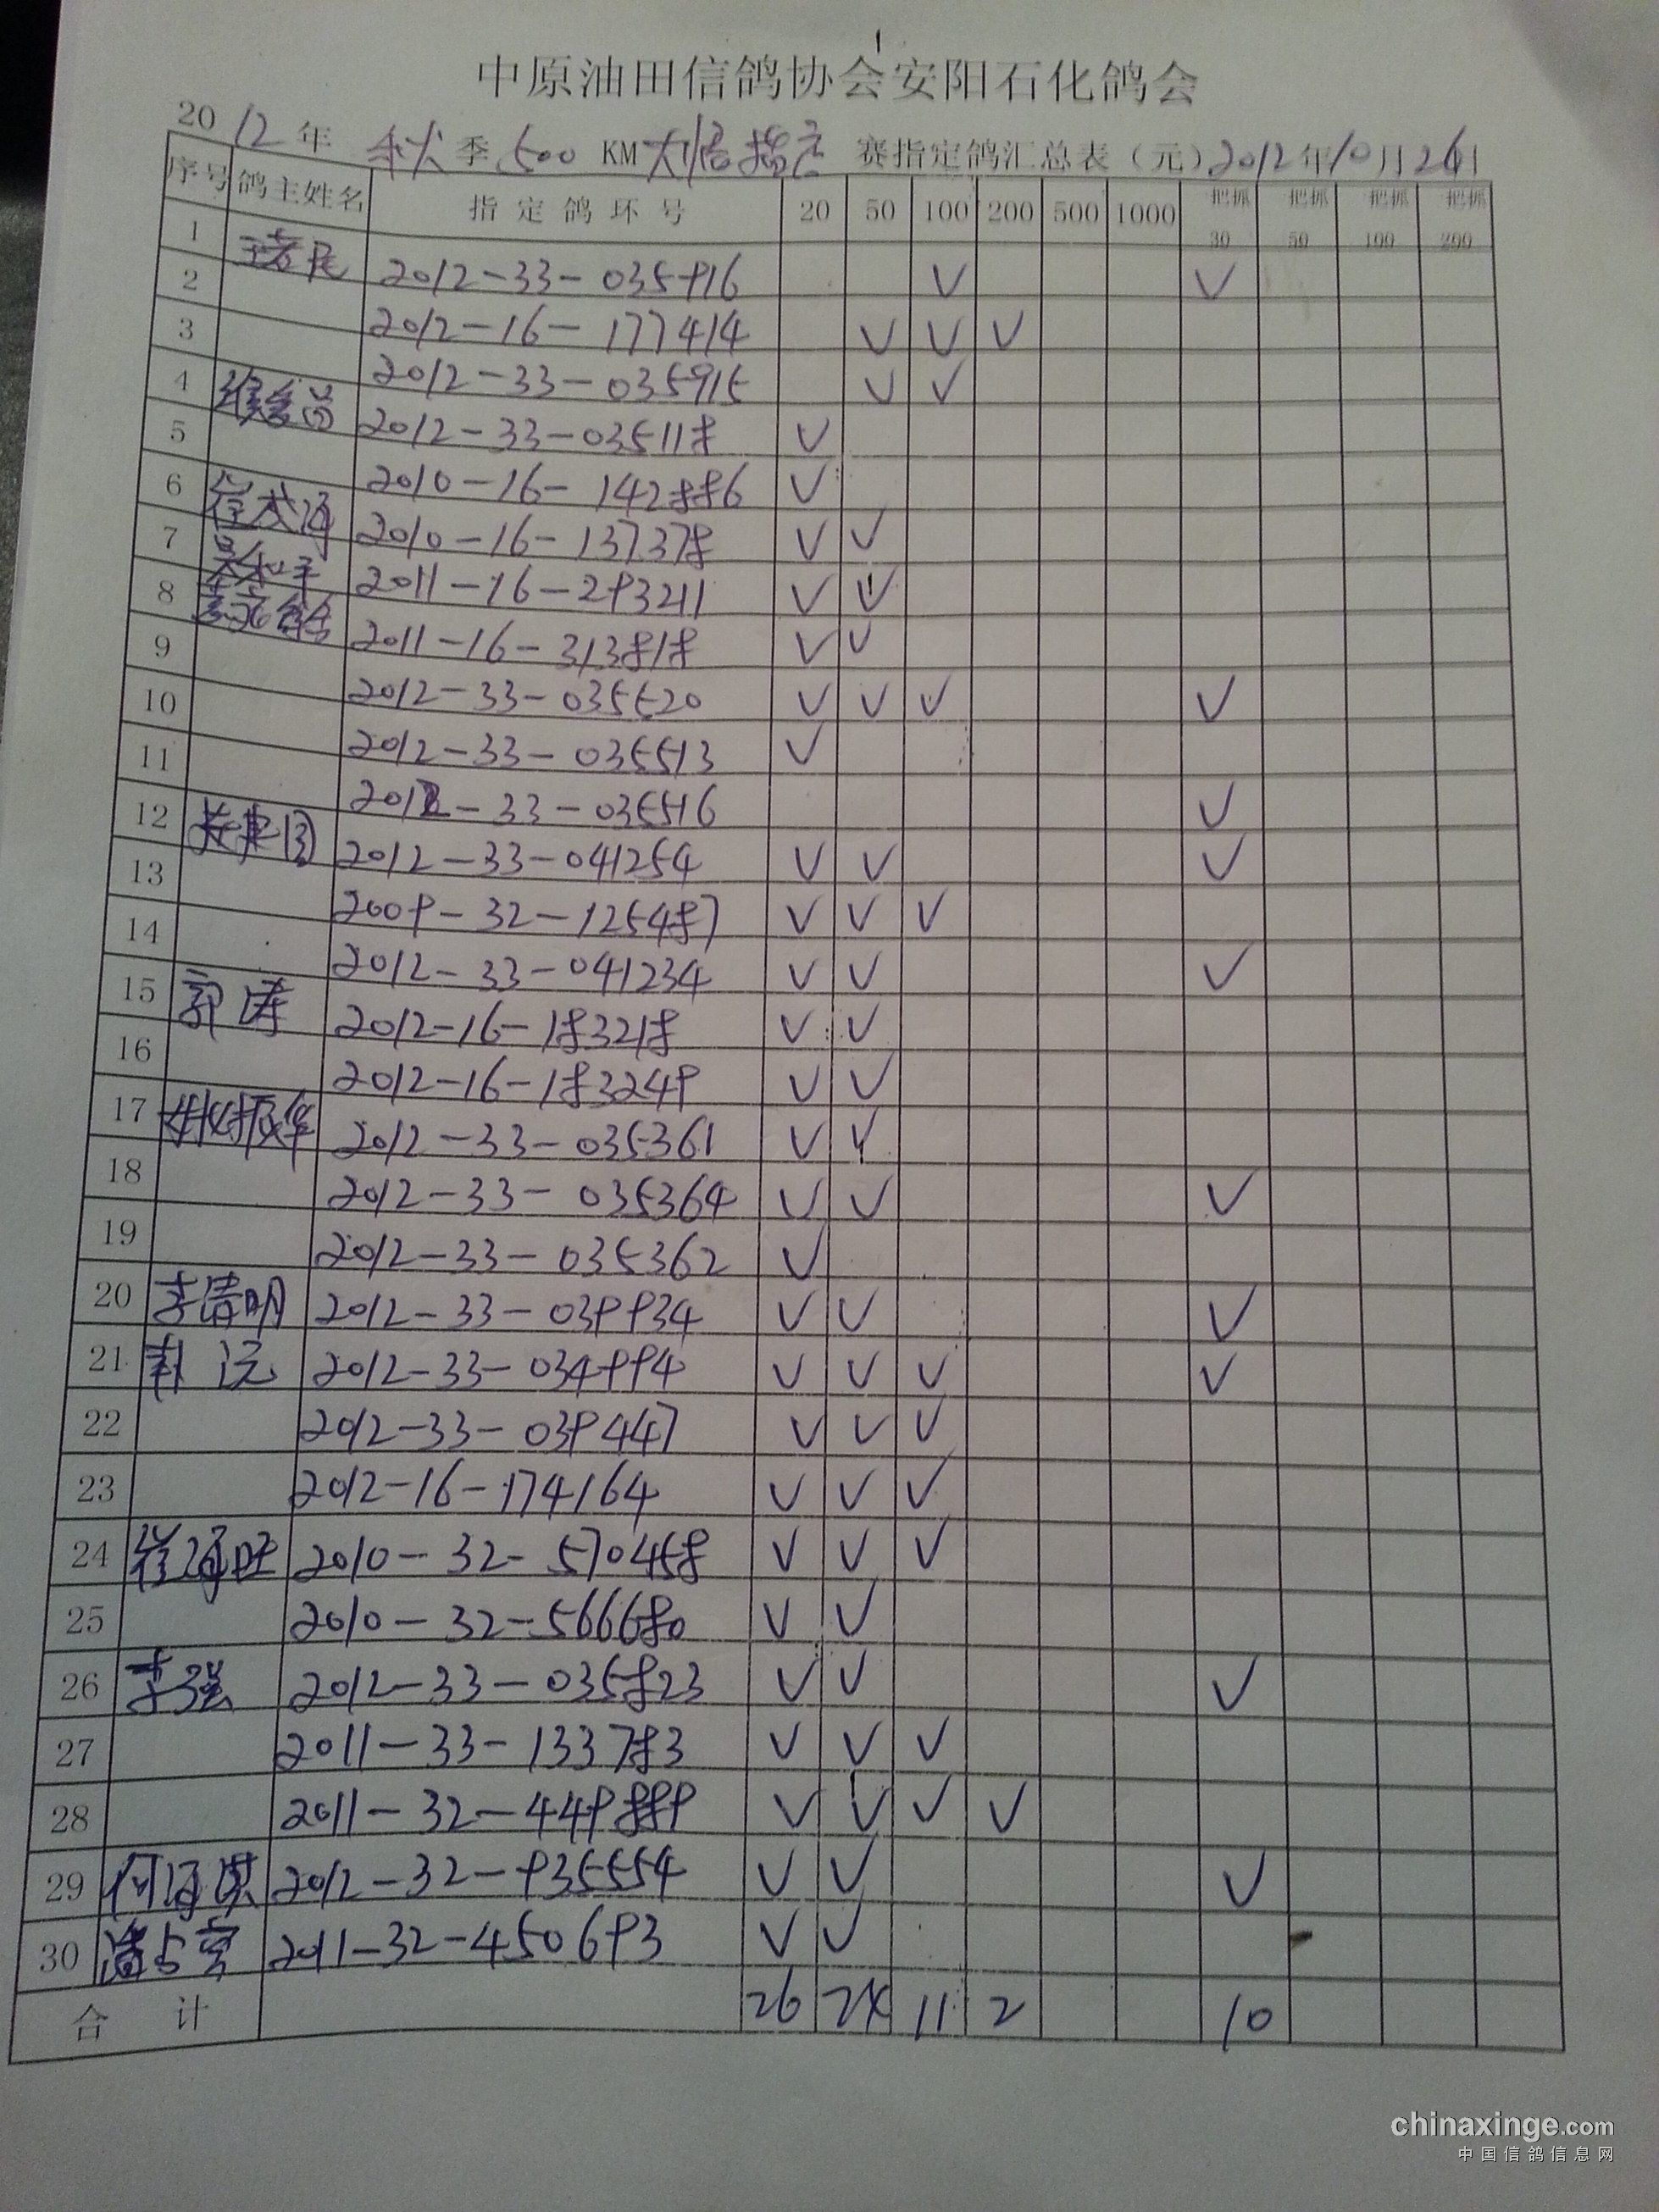 中原油田信鸽协会安阳石化鸽会
2012年 秋季 500 KM 大悟指定 赛指定鸽汇总表(元) 2012年10月26日
序号 鸽主姓名 指定鸽环号 20 50 100 200 500 1000 把抓30 把抓50 把抓100 把抓200
1 2012-33-035916 ✓ ✓
2 2012-16-177414 ✓ ✓ ✓
3 2012-33-035915 ✓ ✓
4 2012-33-035118 ✓
5 2010-16-142886 ✓
6 2010-16-137378 ✓ ✓
7 吴和平 2011-16-293211 ✓ ✓
8 2011-16-313818 ✓ ✓
9 2012-33-035520 ✓ ✓ ✓ ✓
10 2012-33-035513 ✓
11 2012-33-035516 ✓
12 2012-33-041254 ✓ ✓ ✓
13 2009-32-125487 ✓ ✓ ✓
14 2012-33-041234 ✓ ✓ ✓
15 郭涛 2012-16-183218 ✓ ✓
16 2012-16-183249 ✓ ✓
17 2012-33-035361 ✓ ✓
18 2012-33-035364 ✓ ✓ ✓
19 2012-33-035362 ✓
20 李清明 2012-33-039934 ✓ ✓ ✓
21 2012-33-034994 ✓ ✓ ✓ ✓
22 2012-33-039447 ✓ ✓ ✓
23 2012-16-174164 ✓ ✓ ✓
24 崔海旺 2010-32-570458 ✓ ✓ ✓
25 2010-32-566680 ✓ ✓
26 李强 2012-33-035823 ✓ ✓ ✓
27 2011-33-133783 ✓ ✓ ✓
28 2011-32-449889 ✓ ✓ ✓ ✓
29 何海洪 2012-32-935554 ✓ ✓ ✓
30 潘占宾 2011-32-450693 ✓ ✓
合计 26 24 11 2 10
chinaxinge.com
中国信鸽信息网